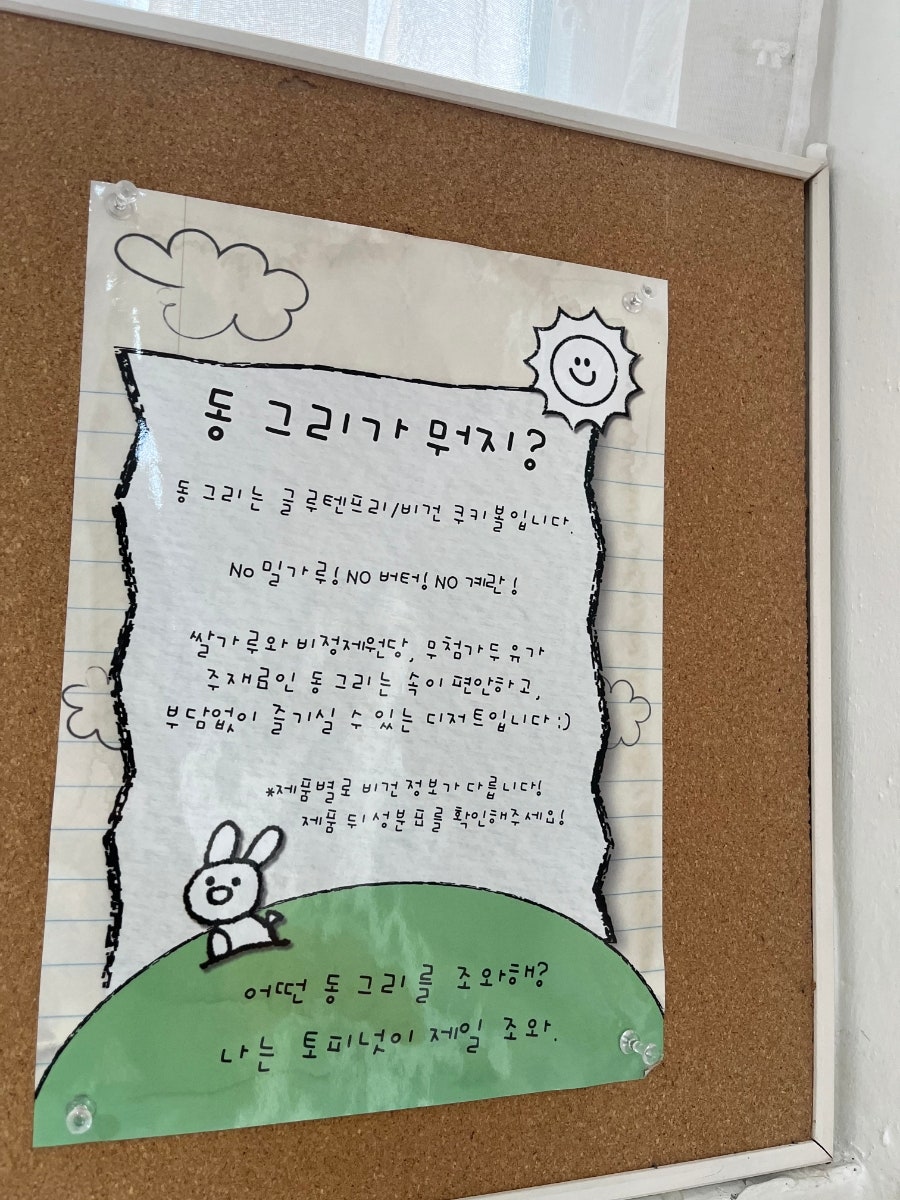 동그리가 뭐지?
동그리는 글루텐프리/비건 쿠키볼입니다.
No 밀가루! NO 버터! NO 계란!
쌀가루와 비정제원당, 무첨가두유가
주재료인 동그리는 속이 편안하고,
부담없이 즐기실 수 있는 디저트입니다:)
*제품별로 비건 정보가 다릅니다!
제품 뒤 성분표를 확인해주세요!
어떤 동그리를 조와해?
나는 토피넛이 제일 조와.